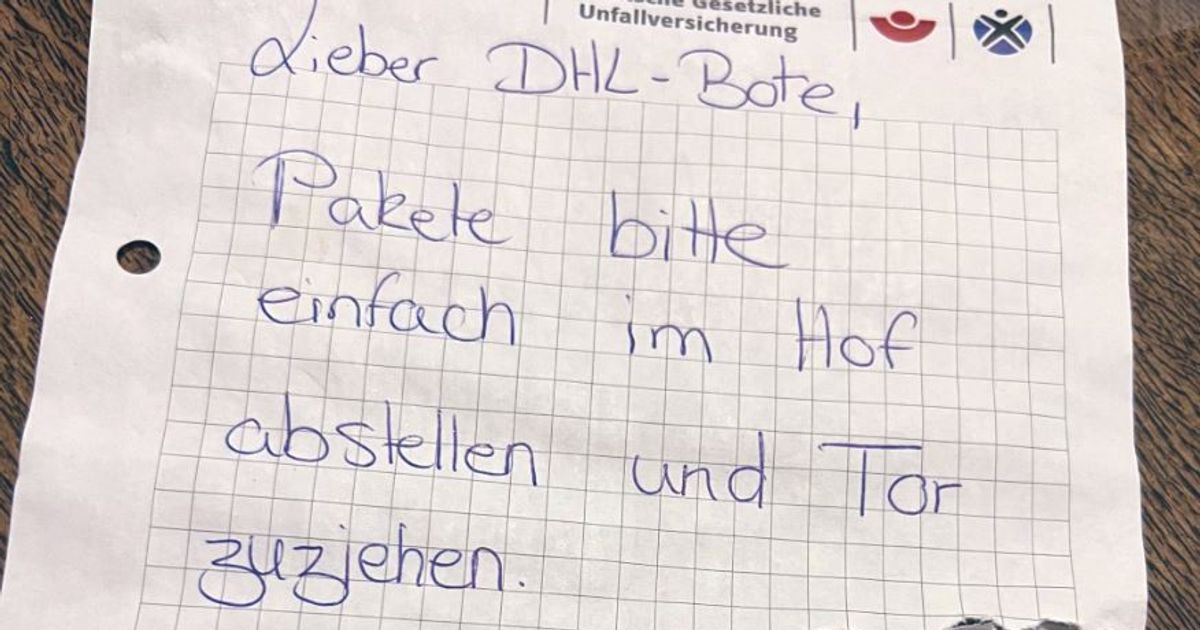 Gesetzliche
Unfallversicherung
Lieber DHL-Bote,
Pakete bitte
einfach im Hof
abstellen und Tor
zuziehen.